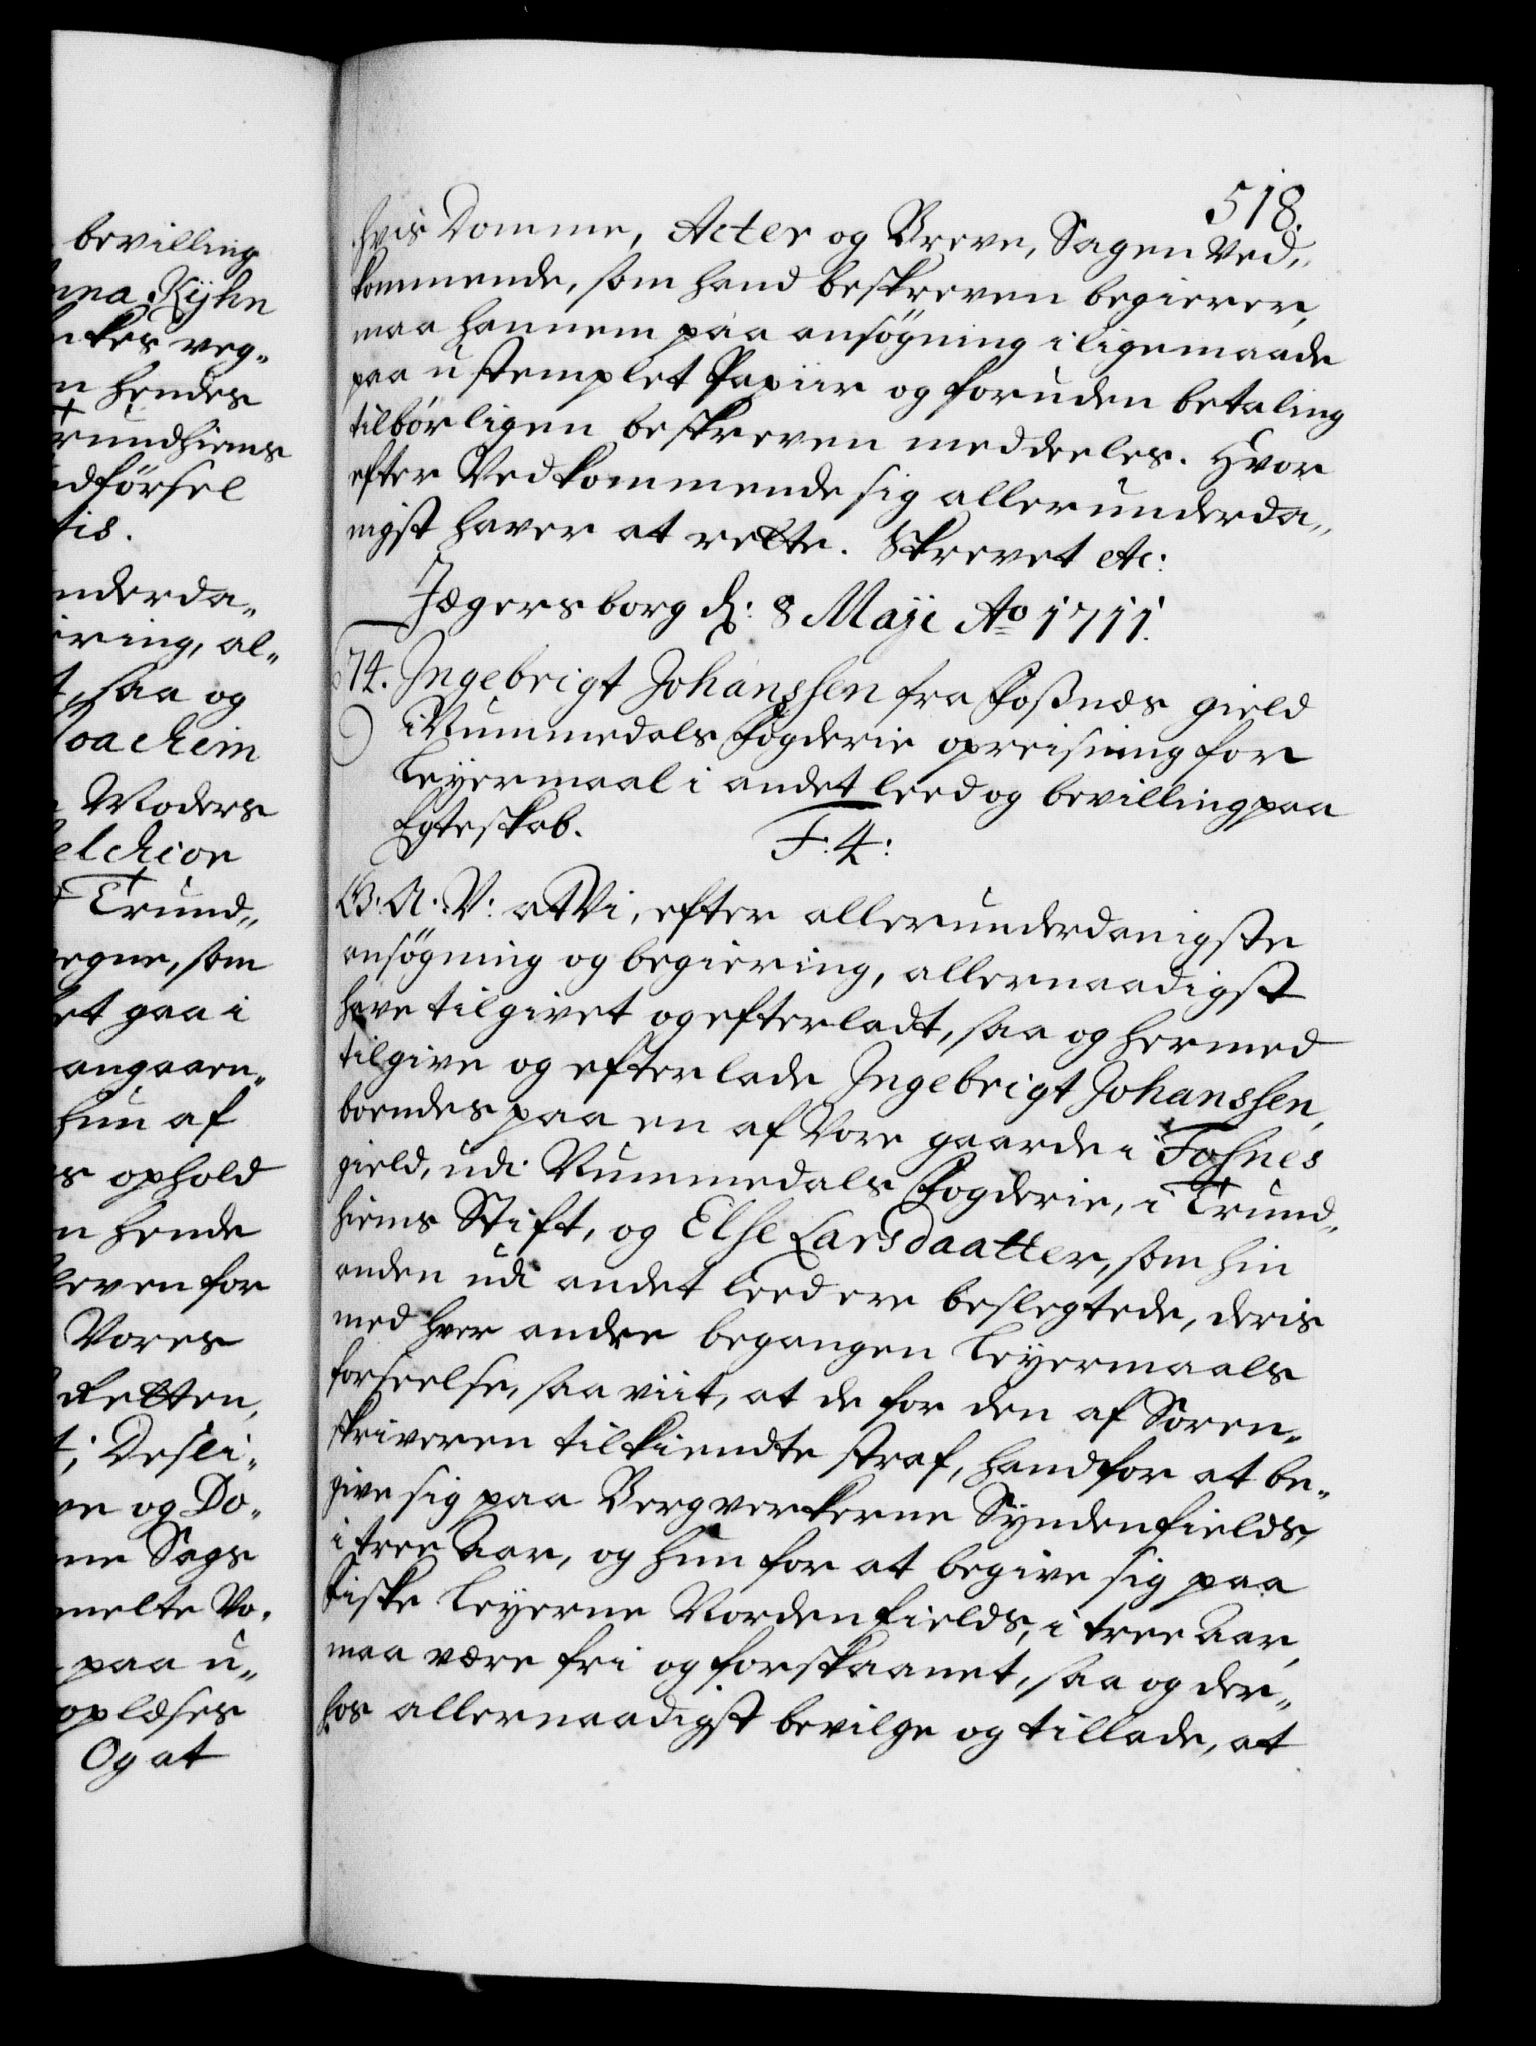 bevilling
nna Kyhn
kes veg-
n hendes
Trundhiems
dförsel
tis.
nderda-
ring, al-
t, saa og
Joachim
Moders
elchior
Trund-
egne, som
et gaa i
angaaen-
hun af
s ophold
n hende
leven for
Vores
Retten,
t; Desli-
ve og Do-
ne Sags
melte Vo-
paa u-
oplæses
Og at
518.
hvis Domme, Acter og Breve, Sagen Ved-
kommende, som hand beskreven begierer,
maa hannem paa ansögning i ligemaade
paa ustemplet Papiir og foruden betaling
tilbörligen beskreven meddeeles. Hvor
efter Vedkommende sig allerunderda-
nigst haver at rette. Skrevet etc:
Jægersborg d: 8 Maji Ao 1711.
674. Ingebrigt Johanssen fra Foßnæs gield
i Nummedals Fogderie opreisning for
Leyermaal i andet leed og bevilling paa
Egteskab.
F: 4:
G: A: V: at Vi, efter allerunderdanigste
ansögning og begiering, allernaadigst
have tilgivet og efterladt, saa og hermed
tilgive og efterlade Ingebrigt Johanssen,
boendes paa en af Vore gaarde i Foßnes
gield, udi Nummedals Fogderie, i Trund-
hiems Stift, og Else Larsdaatter, som hin
anden udi andet leed ere beslegtede, deris
med hver andre begangen Leyermaals
forseelse, saa viit, at de for den af Soren-
skriveren tilkiendte straf, hand for at be-
give sig paa Bergverkerne Syndenfields,
i tree Aar, og hun for at begive sig paa
Fiske Leyerne Nordenfields, i tree Aar,
maa være fri og forskaanet, saa og der-
hos allernaadigst bevilge og tillade, at